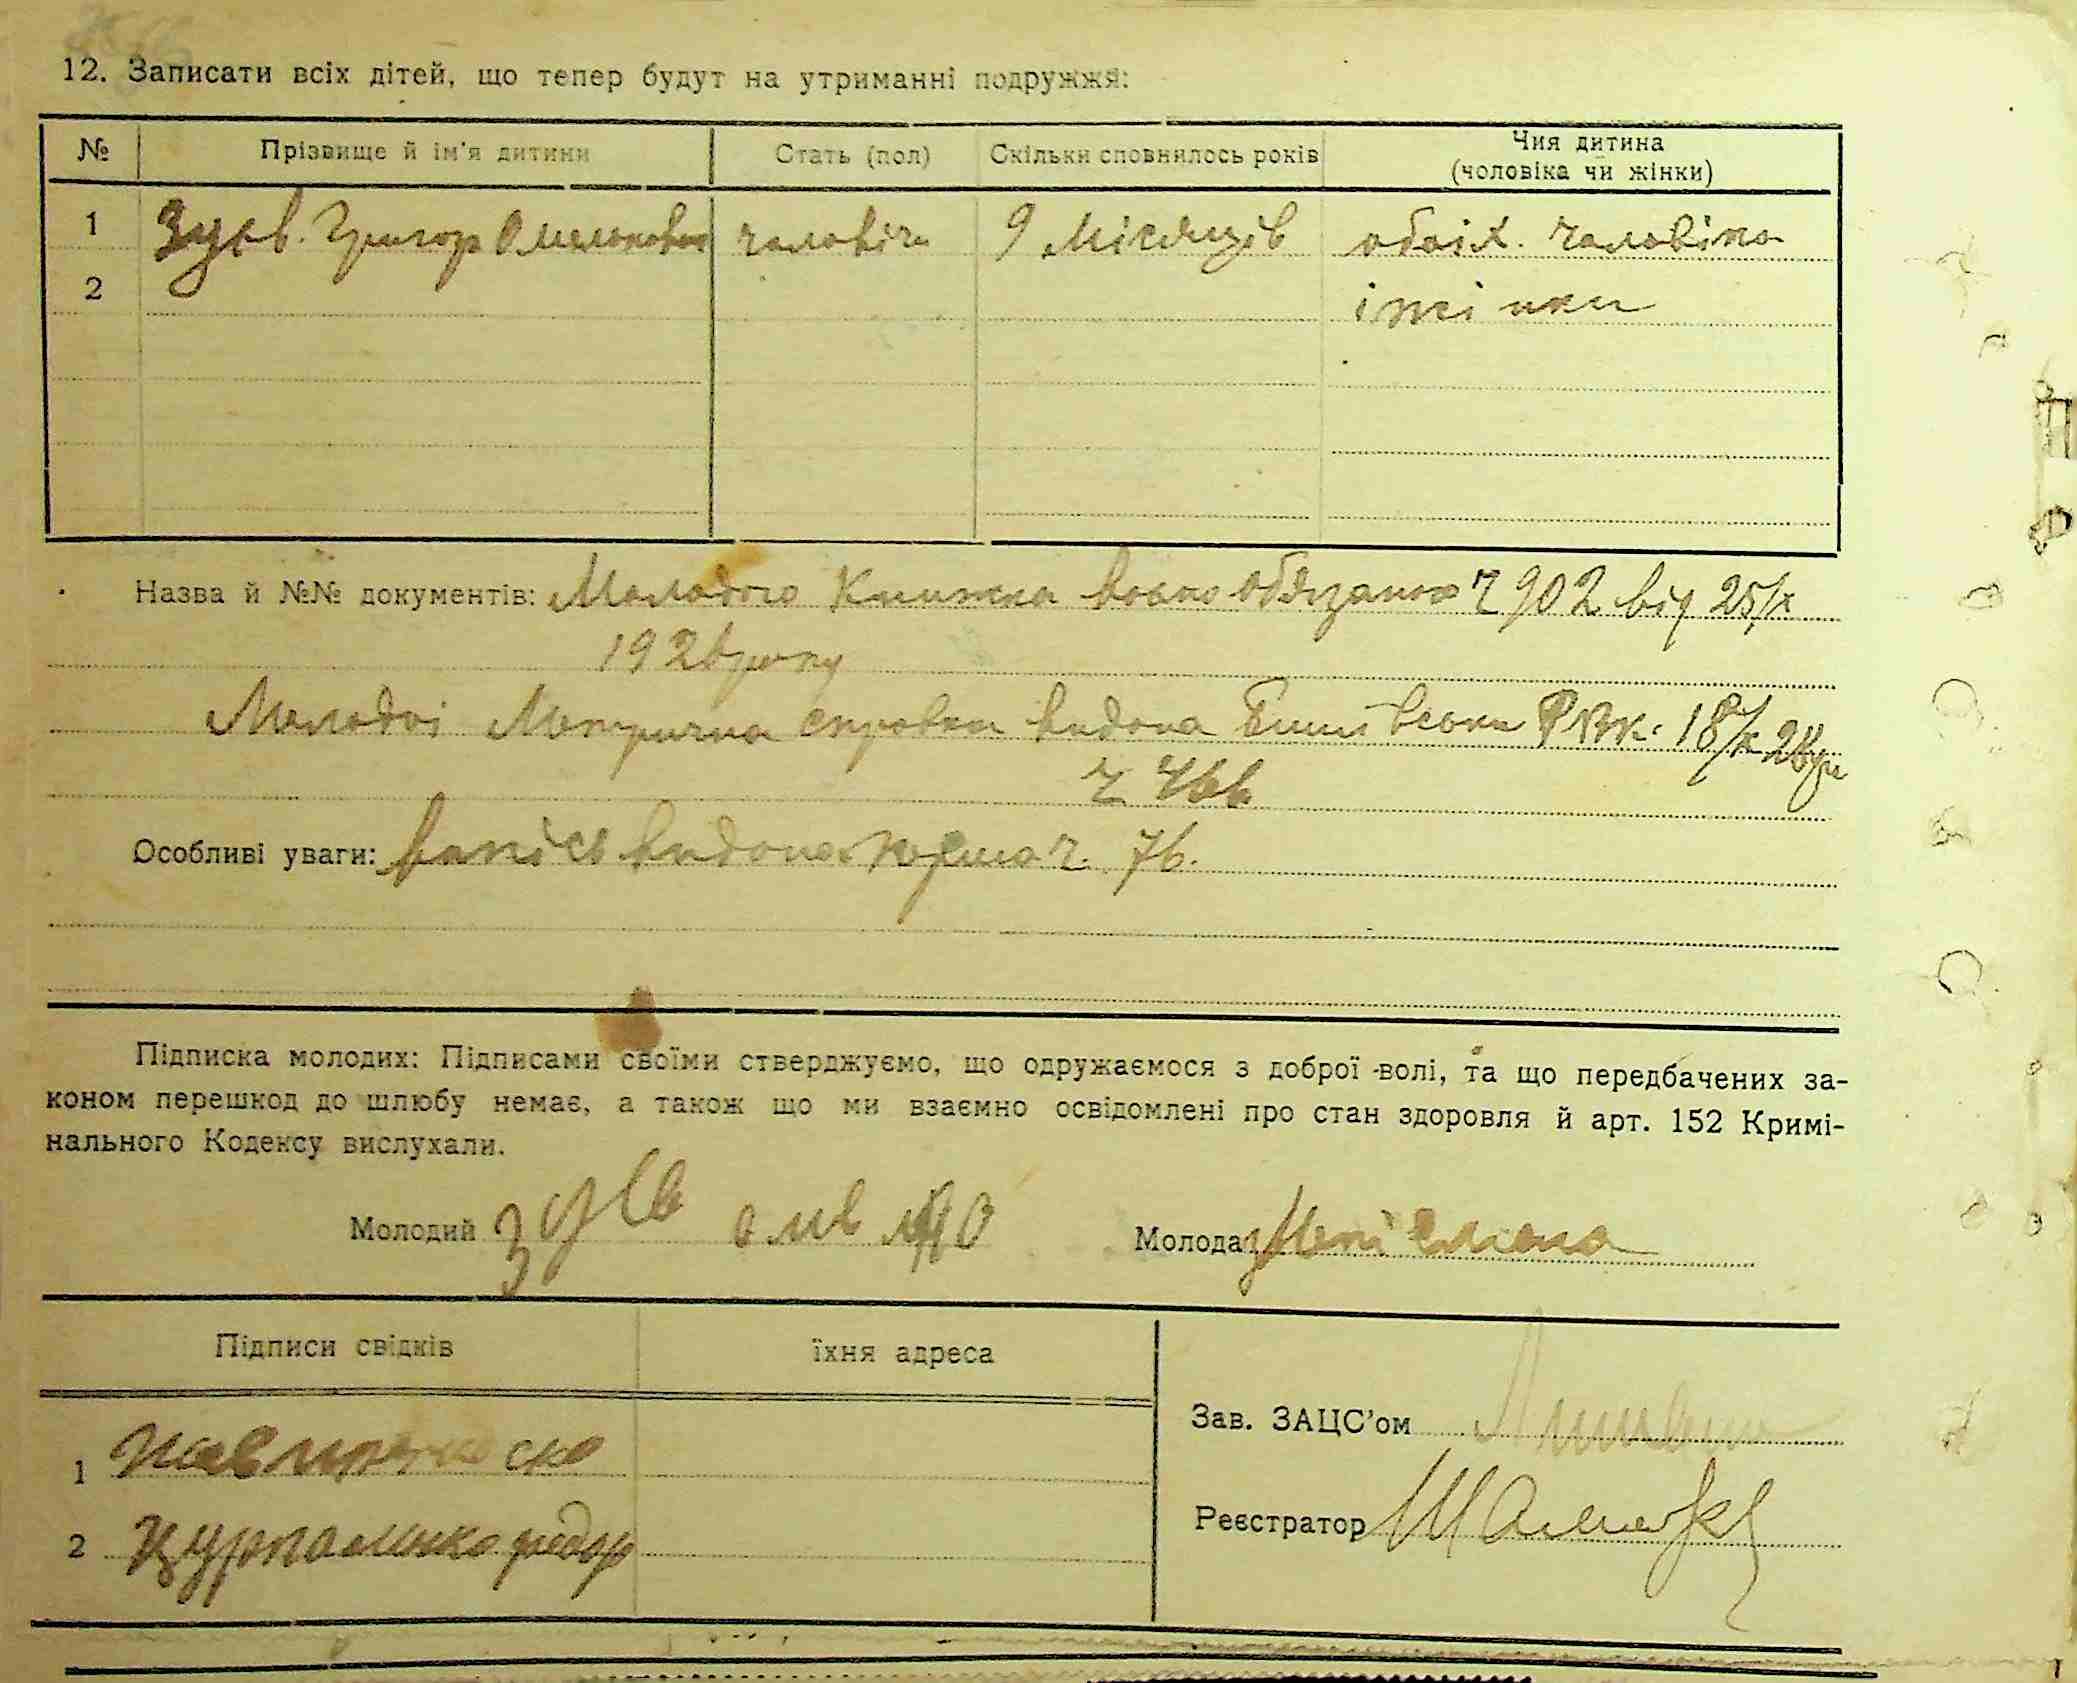 12. Записати всіх дітей, що тепер будут на утриманні подружжя:
№ Прізвище й ім'я дитини Стать (пол) Скільки сповнилось років Чия дитина
(чоловіка чи жінки)
1 Зуєв. Григор Омелькович чоловіч 9 місяців обоіх. чоловіка
2 і жі нки
Назва й №№ документів: Молодого Книжка 7902 від 25/х
192 року
Молодоі Метрична справка видана РВК. 18/х
Особливі уваги: видана перша ч. 76.
Підписка молодих: Підписами своїми стверджуємо, що одружаємося з доброї волі, та що передбачених за-
коном перешкод до шлюбу немає, а також що ми взаємно освідомлені про стан здоровля й арт. 152 Кримі-
нального Кодексу вислухали.
Молодий Зуєв Молода
Підписи свідків їхня адреса
Зав. ЗАЦС'ом
1
Реєстратор
2 федор